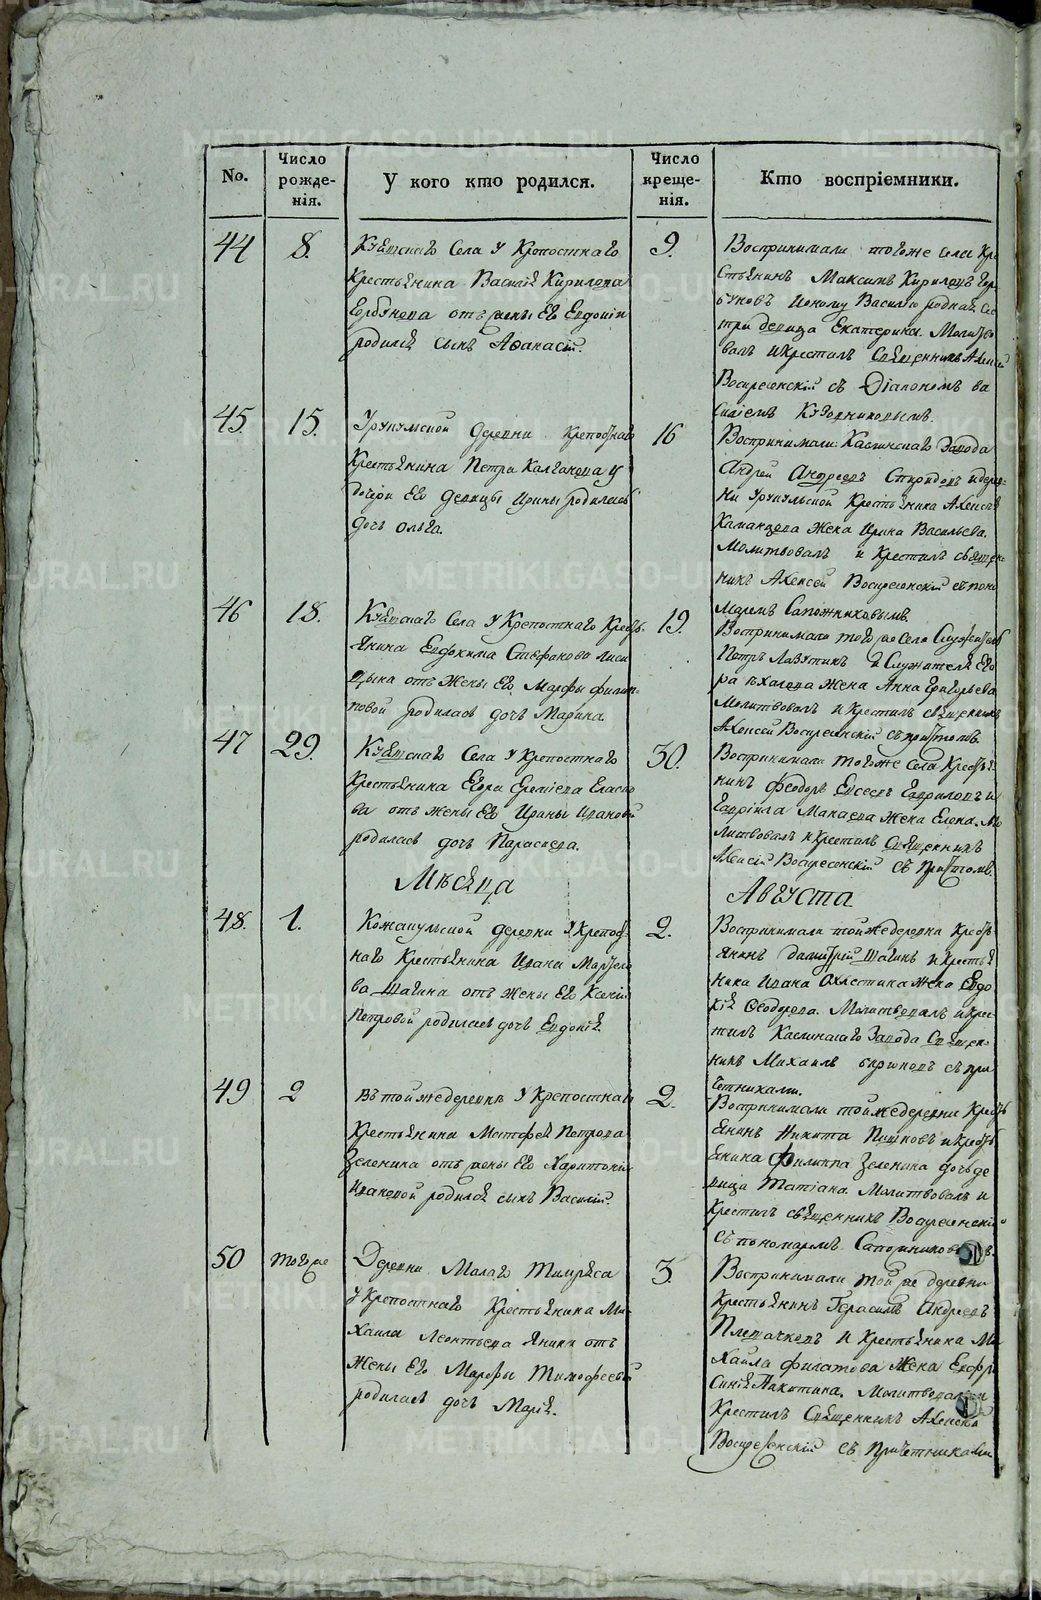 No.
Число рожде-нія.
У кого кто родился.
Число креще-нія.
Кто воспріємники.
44
8.
Села У Крепостнаго
Крестьянина Василія Кирилова
отъ жены Его Евдокіи
родился сынъ Афанасій.
9.
Воспринимали тогоже села Кре
стьянинъ Максимъ Кириловъ Гор
Василію родная сес
тра девица Екатерина. Молитво
валъ и крестилъ Священникъ Алексій
Воскресенскій съ Діакономъ ва
силіемъ
45.
15.
деревни крепостнаго
Крестьянина Петра У
дочери Его девицы Ирины родилась
дочь Ольга.
16
Воспринимали Каслинскаго Завода
Андрей Андреевъ Спиридовъ и дерев-
ни Крестьянина Алексея
Жена Ирина Васильева.
Молитвовалъ и Крестилъ священ-
никъ Алексей Воскресенскій съ поно
маремъ Сапожниковымъ.
46
18.
Села У Крепостнаго Кресть-
янина Евдокима Стефанова Лиси
цына отъ Жены Его Марфы Филип-
повой родилась дочь Марина.
19.
Воспринимали того же Села Служитель
Петръ Лазутинъ и Служителя Его
ра Жена Анна Григорьева
Молитвовалъ и Крестилъ священникъ
Алексей Воскресенскій съ притомъ.
47
29.
Села У Крепостнаго
Крестьянина Егора
отъ жены Его Ирины Ивановой
родилась дочь Параскева.
30.
Воспринимали тогоже Села Крестья
нинъ Феодоръ Евсеевъ Гавриловъ и
Гавріила Макаева Жена Елена. Мо
литвовалъ и Крестилъ Священникъ
Алексій Воскресенскій съ Притомъ.
Месяца
Августа
48.
1.
деревни У Крепост
наго Крестьянина Ивана
Шагина отъ Жены Его Ксении
Петровой родилась дочь Евдокія.
2.
Воспринимали тойже деревни Кресть
янинъ Шагинъ и Крестья
нина Ивана Жена Евдо
кія Феодорова. Молитвовалъ и кре
тилъ Каслинскаго Завода Священ-
никъ Михаилъ Бирюковъ съ при
четниками.
49
2
Въ тойже деревне У Крепостнаго
Крестьянина Матфея Петрова
Зеленина отъ жены Его Харитоніи
Ивановой родился сынъ Василій.
2.
Воспринимали тойже деревни Кресть
янинъ Никита и кресть
янина Филиппа Зеленина дочь де
вица Татіана. Молитвовалъ и
Крестилъ священникъ Воскресенскій
съ пономаремъ
50
того же
Деревни Малаго
У Крепостнаго Крестьянина Ми-
хаила Леонтьева отъ
Жены Его Марфы Тимофеевой
родилась дочь Марія.
3.
Воспринимали той же деревни
Крестьянинъ Герасимъ Андреевъ
и Крестьянина Ми
хаила Филатова Жена Евфр
синія Молитвовалъ и
Крестилъ Священникъ Алексей
Воскресенскій съ Причетниками
METRIKI.GASO-URAL.RU